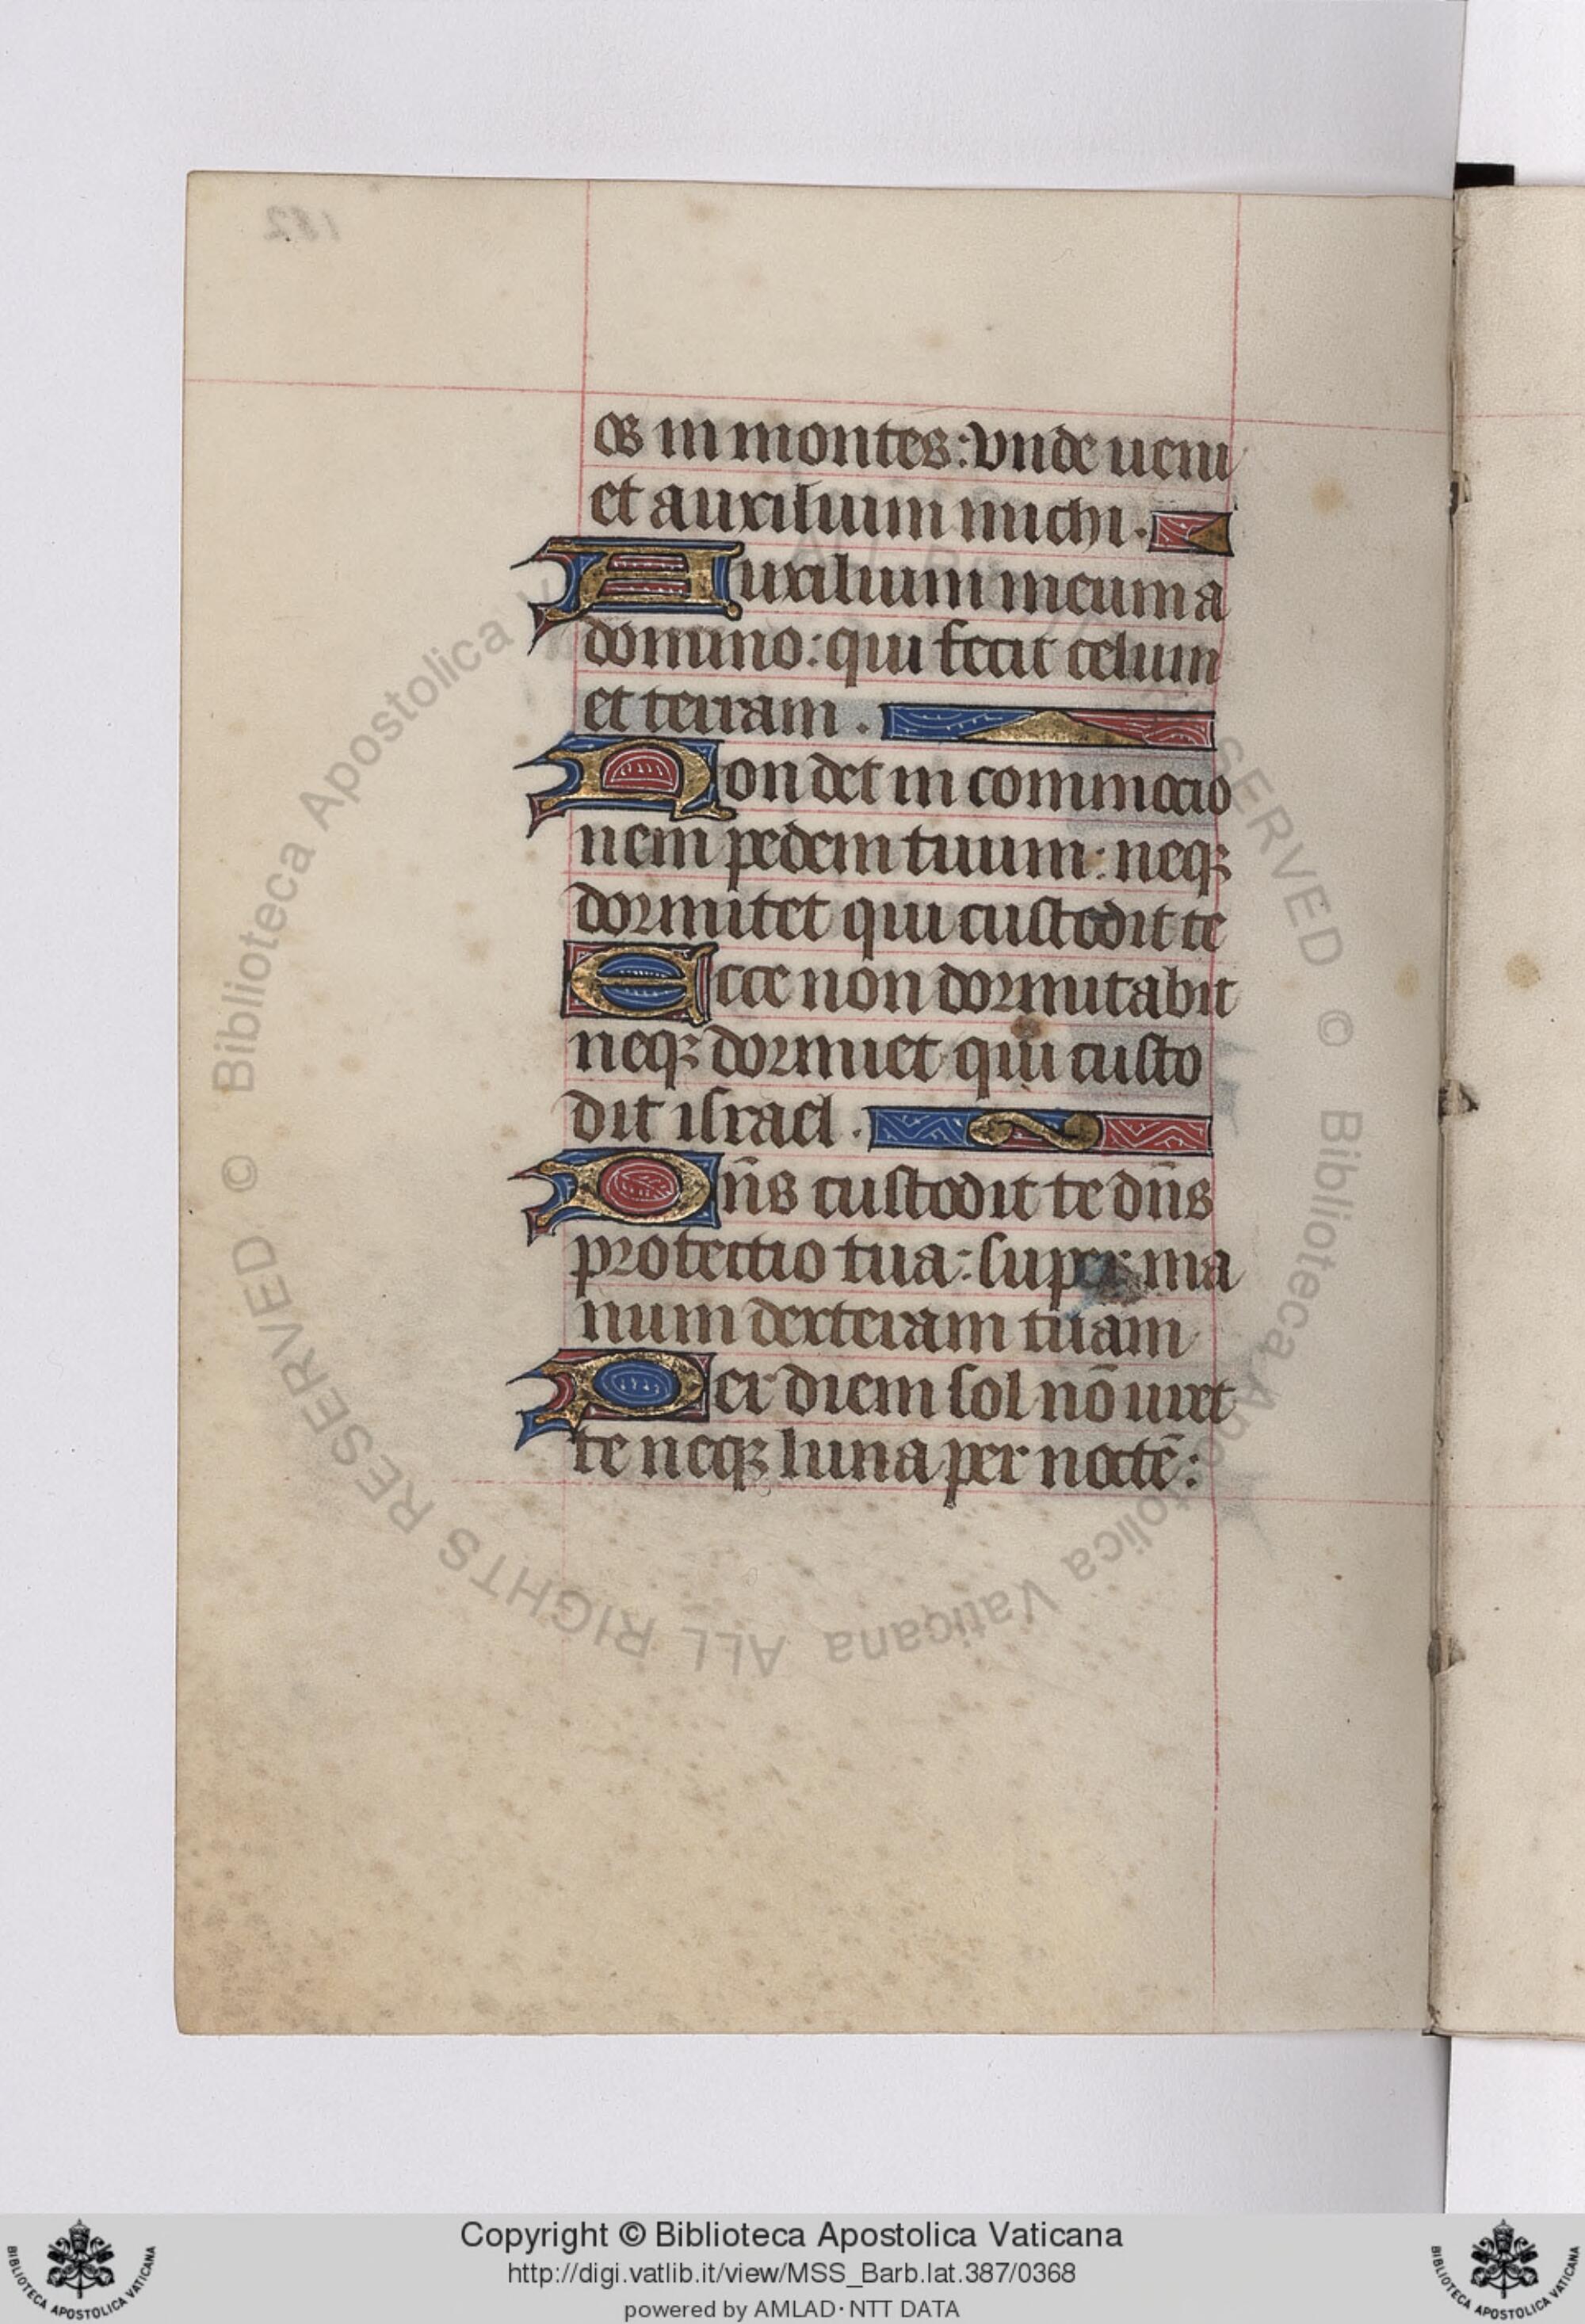 os in montes: vnde ueni
et auxilium michi.
Auxilium meum a
domino: qui fecit celum
et terram.
Non det in commocio
nem pedem tuum: neqȝ
dormitet qui custodit te
Ecce non dormitabit
neqȝ dormiet qui custo
dit israel.
Dn̄s custodit te dn̄s
protectio tua: super ma
num dexteram tuam
Per diem sol nō uret
te neqȝ luna per noctē:
© Biblioteca Apostolica Vaticana ALL RIGHTS RESERVED © Biblioteca Apostolica Vaticana ALL RIGHTS RESERVED
Copyright © Biblioteca Apostolica Vaticana
http://digi.vatlib.it/view/MSS_Barb.lat.387/0368
powered by AMLAD·NTT DATA
BIBLIOTECA APOSTOLICA VATICANA
BIBLIOTECA APOSTOLICA VATICANA